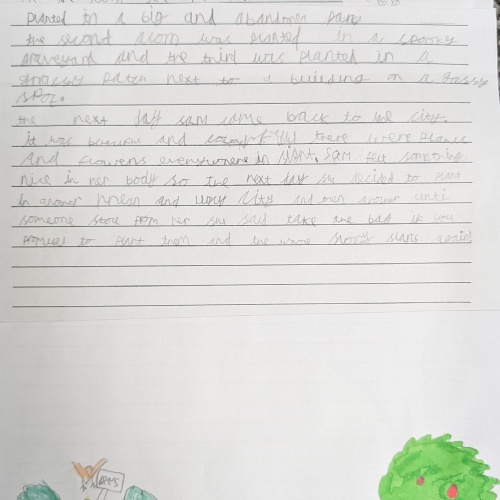 planted in a big and abandoned park
the second acorn was planted in a spooky
graveyard and the third was planted in a
grassy patch next to a building on a grassy
spot.
the next day sam come back to the city.
it was and there were plants
and flowers everywhere in sight. Sam felt something
nice in her body so the next day she decided to plant
in another mean and ugly city and then another until
someone stole from her she said take the bag if you
promise to plant them and the whole story starts again!